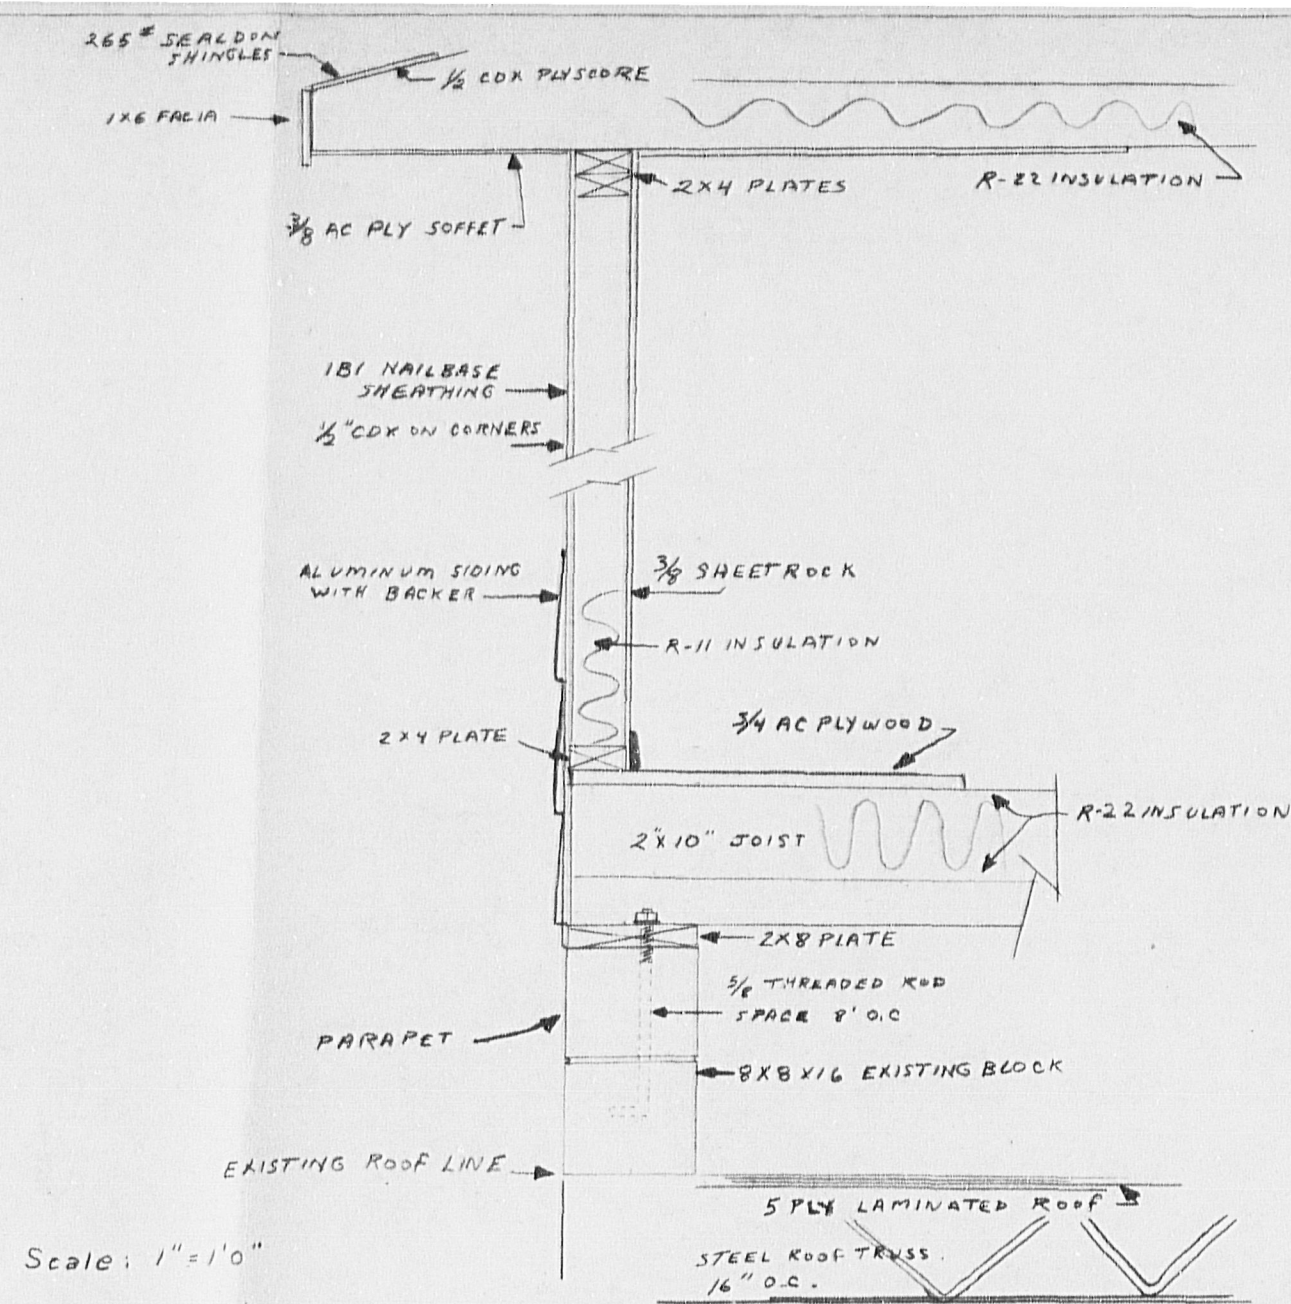 265# SEALDON
SHINGLES
1/2 CDX PLYSCORE
1X6 FACIA
2X4 PLATES
R-22 INSULATION
3/8 AC PLY SOFFET
1B1 NAILBASE
SHEATHING
1/2" CDX ON CORNERS
ALUMINUM SIDING
WITH BACKER
3/8 SHEETROCK
R-11 INSULATION
2X4 PLATE
3/4 AC PLYWOOD
R-22 INSULATION
2"X10" JOIST
2X8 PLATE
5/8 THREADED ROD
SPACE 8' O.C
PARAPET
8X8X16 EXISTING BLOCK
EXISTING ROOF LINE
5 PLY LAMINATED ROOF
Scale: 1"=1'0"
STEEL ROOF TRUSS.
16" O.C.